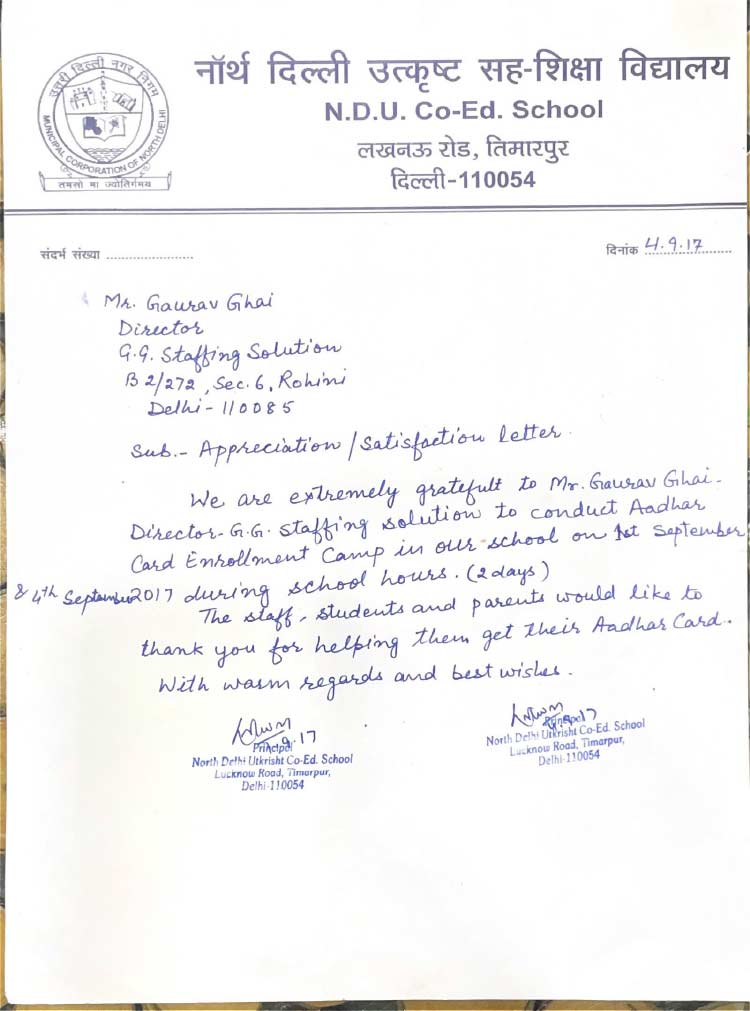 उत्तरी दिल्ली नगर निगम
MUNICIPAL CORPORATION OF NORTH DELHI
तमसो मा ज्योतिर्गमय
नॉर्थ दिल्ली उत्कृष्ट सह-शिक्षा विद्यालय
N.D.U. Co-Ed. School
लखनऊ रोड, तिमारपुर
दिल्ली-110054
संदर्भ संख्या ........................
दिनांक 4.9.17
Mr. Gaurav Ghai
Director
G.G. Staffing Solution
B 2/272, Sec. 6, Rohini
Delhi - 110085
Sub.- Appreciation/Satisfaction letter.
We are extremely gratefull to Mr. Gaurav Ghai-
Director-G.G. Staffing solution to conduct Aadhar
Card Enrollment Camp in our school on 1st September
& 4th September 2017 during school hours. (2 days)
The staff, students and parents would like to
thank you for helping them get their Aadhar Card.
With warm regards and best wishes.
Principal
North Delhi Utkrisht Co-Ed. School
Lucknow Road, Timarpur,
Delhi-110054
Principal
North Delhi Utkrisht Co-Ed. School
Lucknow Road, Timarpur,
Delhi-110054